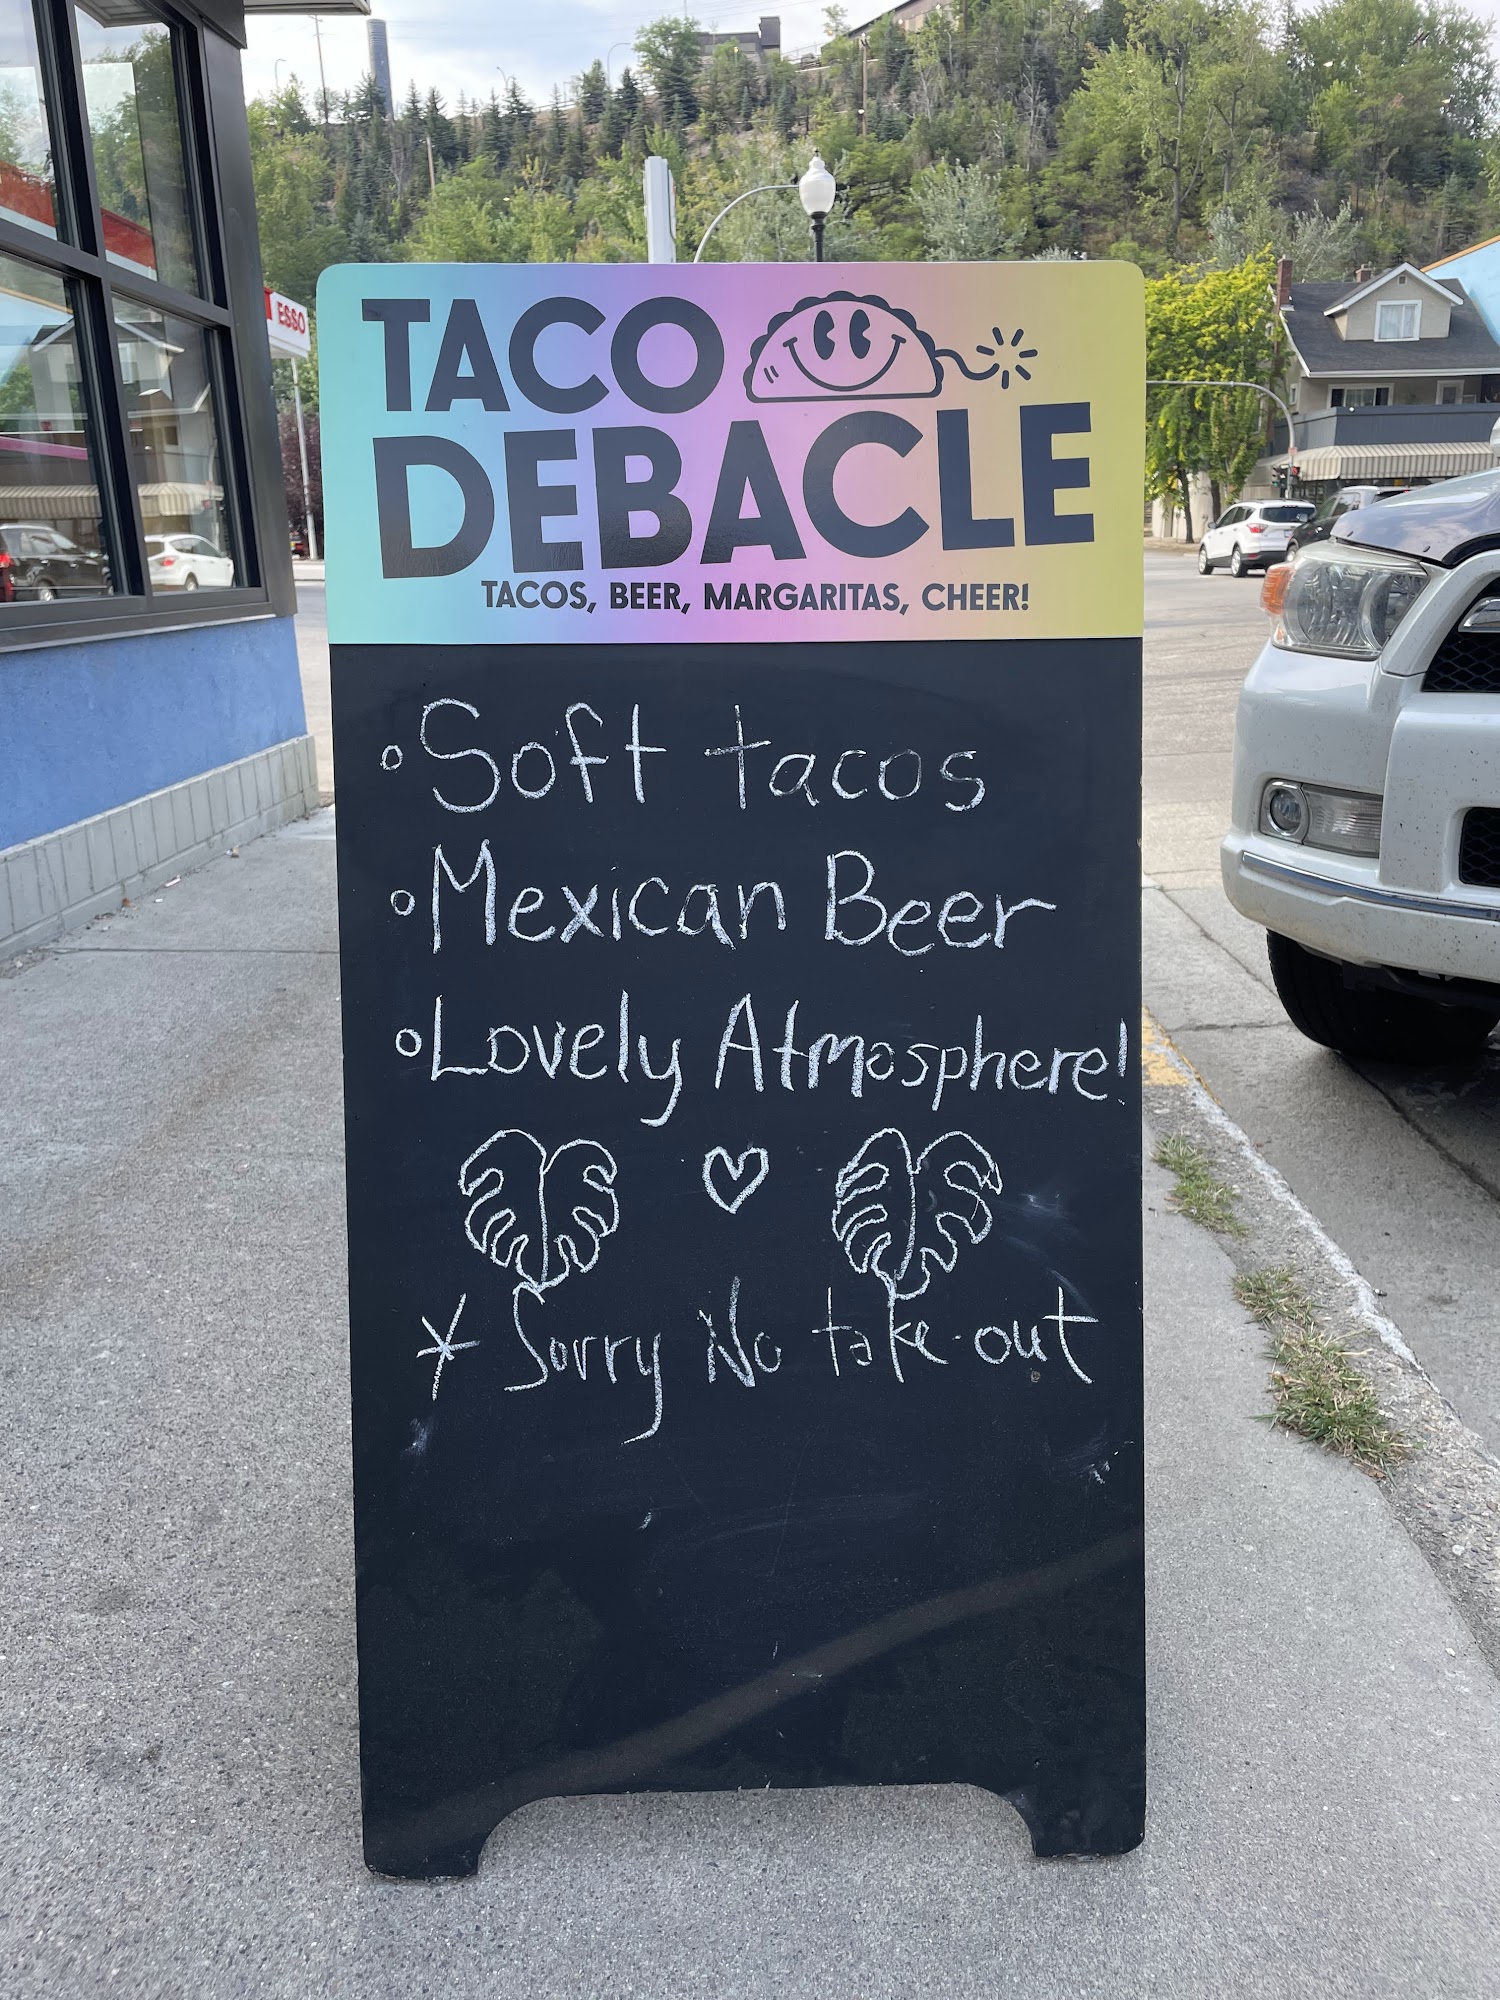 ESSO
TACO
DEBACLE
TACOS, BEER, MARGARITAS, CHEER!
Soft tacos
Mexican Beer
Lovely Atmosphere!
* Sorry No take-out